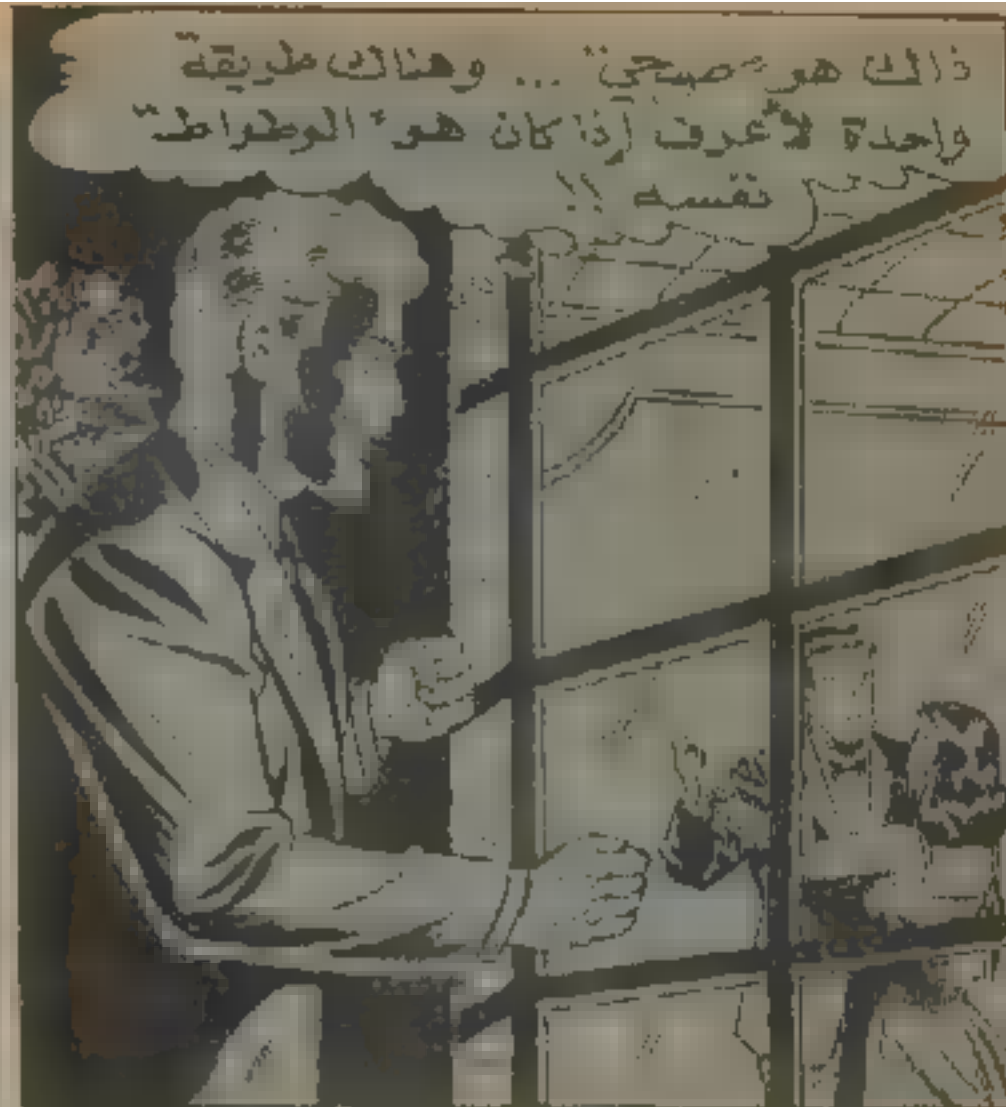 ذاك هو "صبحي" ... وهناك طريقة
واحدة لأعرف إذا كان هو "الوطواط"
نفسه !!